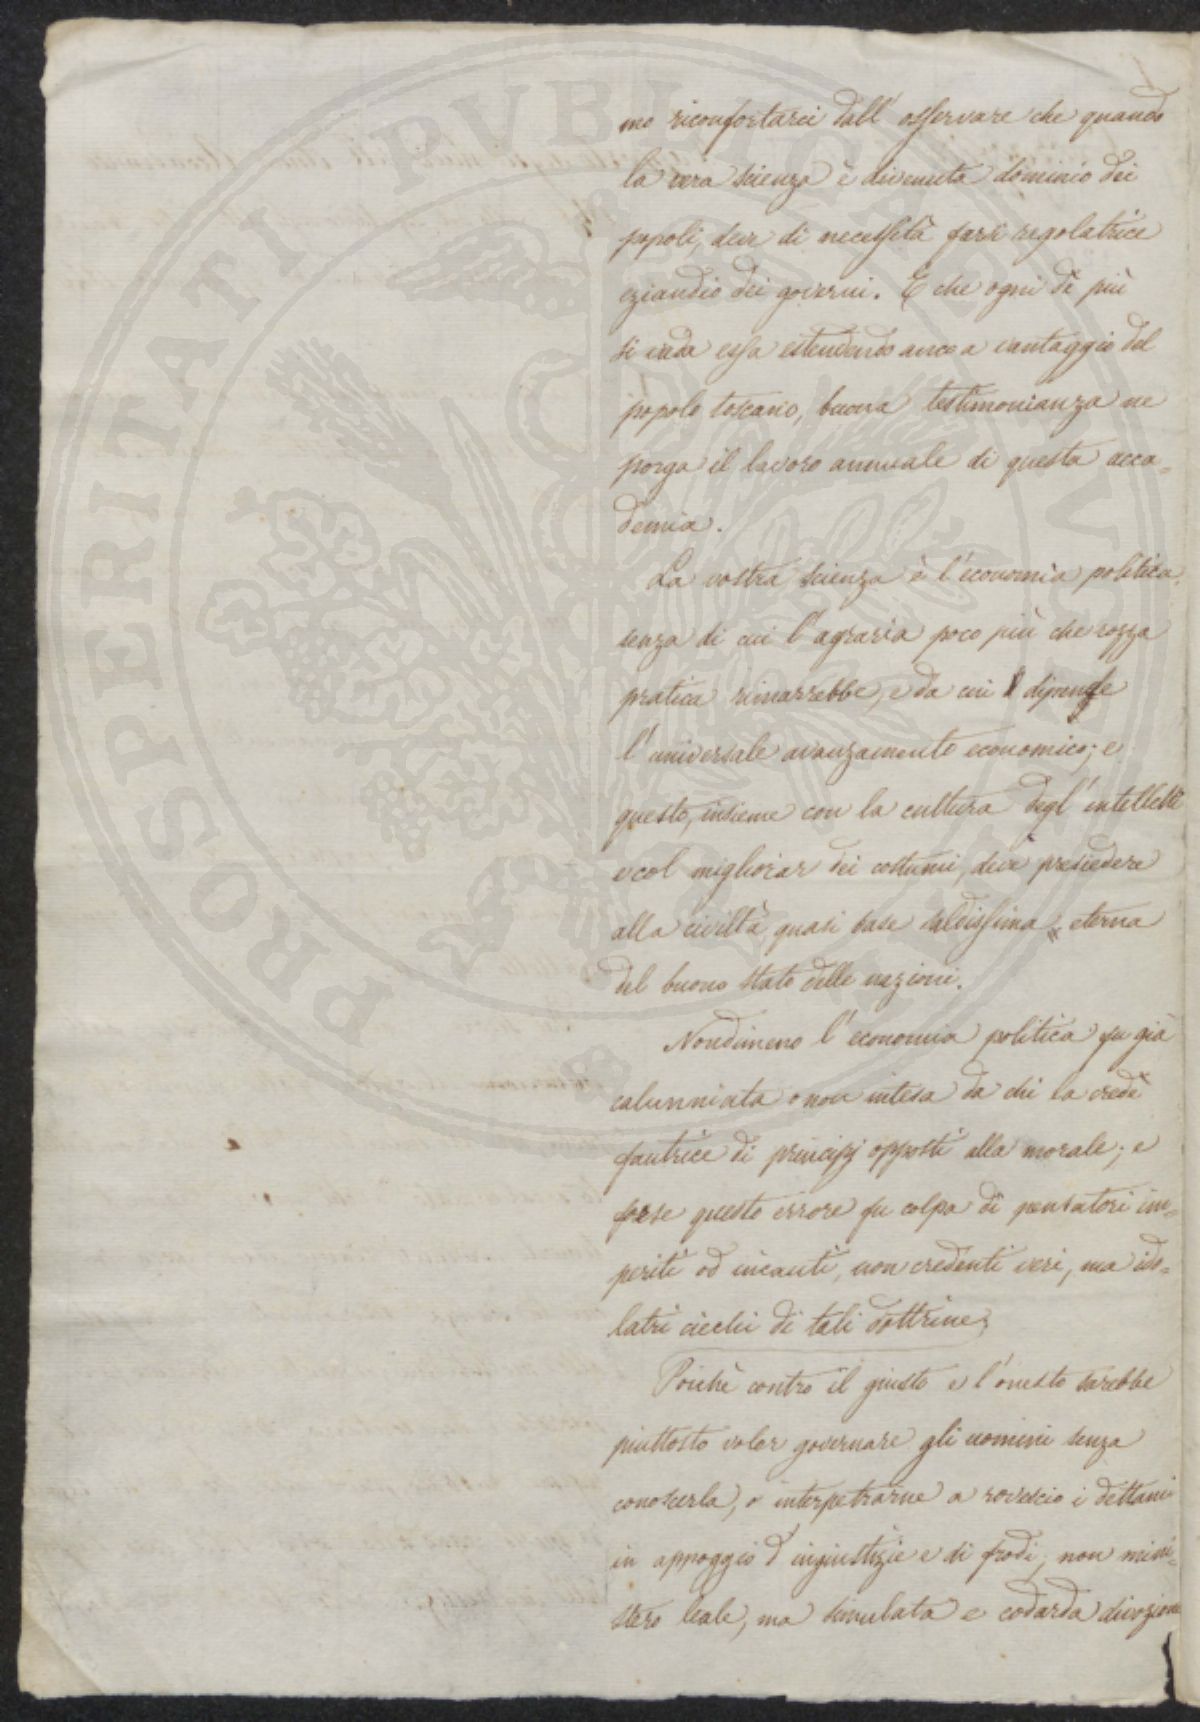 mo riconfortarci dall' osservare che quando
la vera scienza è divenuta dominio dei
popoli, deve di necessità farsi regolatrice
eziandio dei governi. E che ogni dì più
si vada essa estendendo anco a vantaggio del
popolo toscano, buona testimonianza ne
porga il lavoro annuale di questa acca=
demia.
La vostra scienza è l'economia politica,
senza di cui l'agraria poco più che rozza
pratica rimarrebbe, e da cui dipende
l'universale avanzamento economico; e
questo, insieme con la cultura degl' intelletti
e col migliorar dei costumi, deve presiedere
alla civiltà quasi base saldissima eterna
del buono stato delle nazioni.
Nondimeno l'economia politica fu già
calunniata o non intesa da chi la credè
fautrice di principj opposti alla morale; e
forse questo errore fu colpa di pensatori im=
periti od incauti, non credenti veri, ma ido=
latri ciechi di tali dottrine;
Poichè contro il giusto e l'onesto sarebbe
piuttosto voler governare gli uomini senza
conoscerla, o interpetrarne a rovescio i dettami
in appoggio d'ingiustizie e di frodi, non mini=
stero leale, ma simulata e codarda divozione
PROSPERITATI PVBLICAE